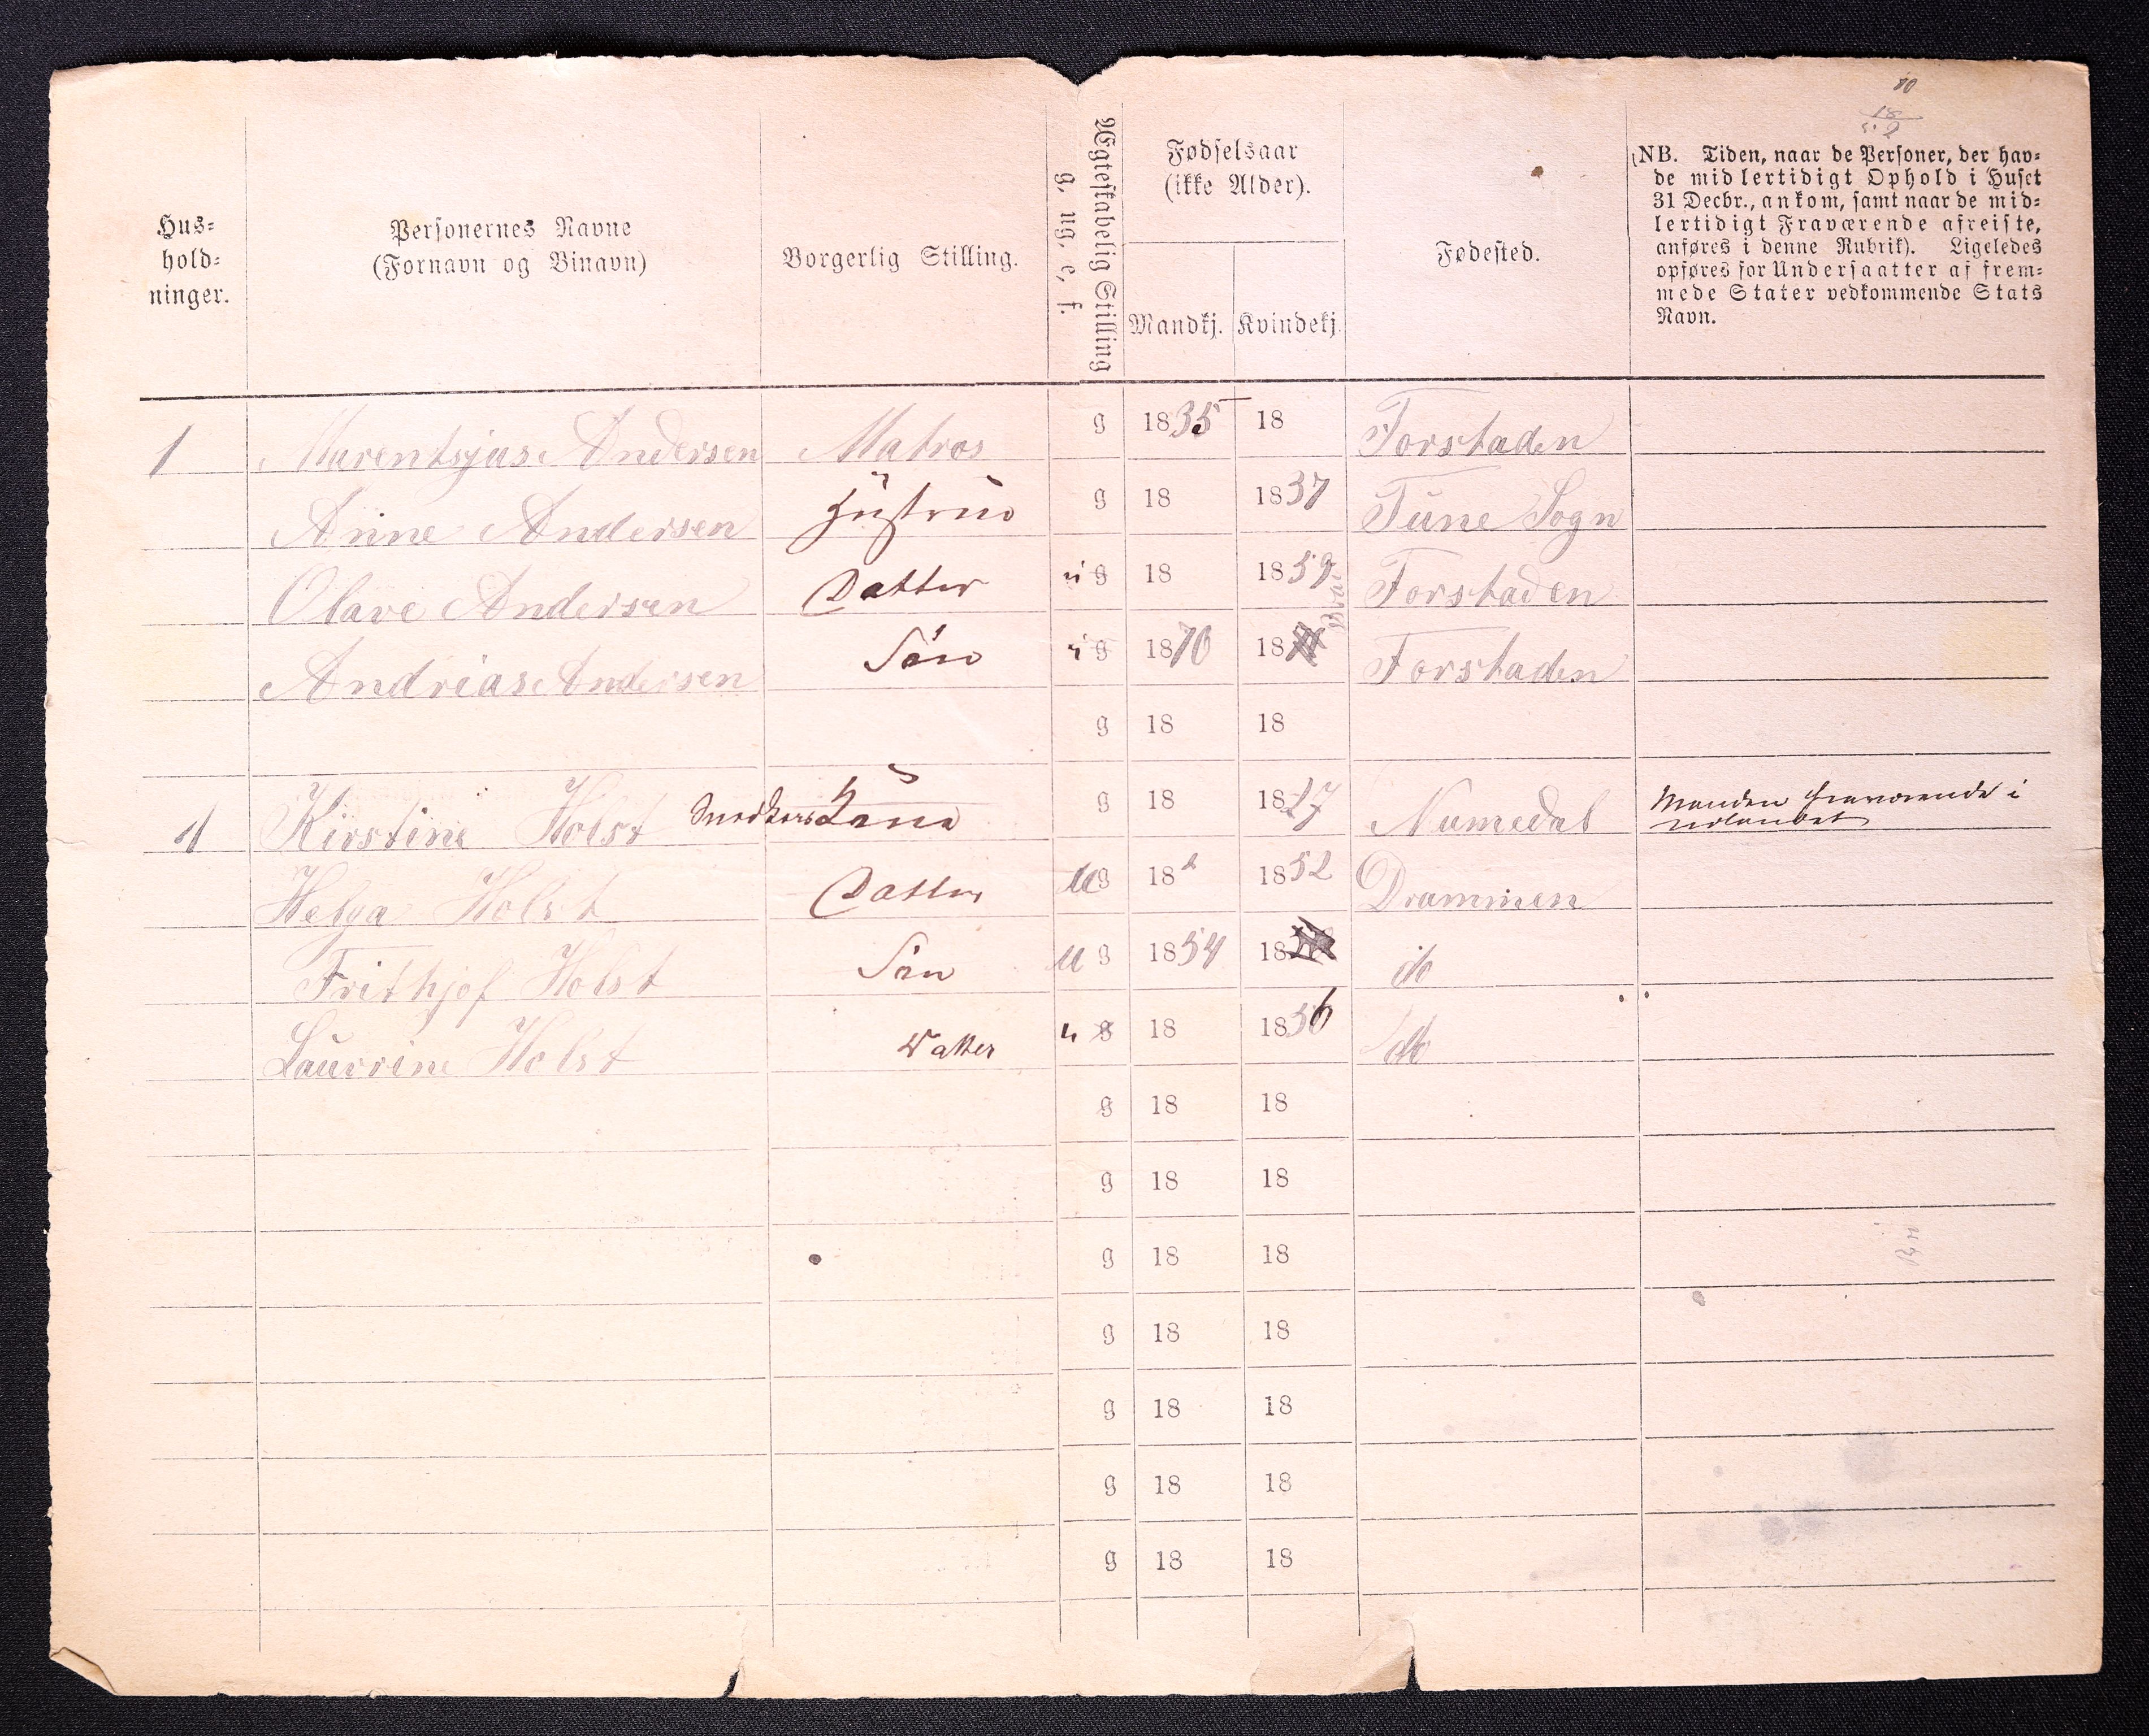 80
18
Hus-
hold-
ninger.
Personernes Navne
(Fornavn og Binavn)
Borgerlig Stilling.
Ægteskabelig Stilling
g, ug, e, f.
Fødselsaar
(ikke Alder).
Mandkj.
Kvindekj.
Fødested.
NB. Tiden, naar de Personer, der hav-
de midlertidigt Ophold i Huset
31 Decbr., ankom, samt naar de mid-
lertidigt Fraværende afreiste,
anføres i denne Rubrik). Ligeledes
opføres for Undersaatter af frem-
mede Stater vedkommende Stats
Navn.
1 Marentsjus Andersen Matros g 1835 18 Forstaden
Anne Andersen Hustru g 18 1837 Tune Sogn
Olave Andersen Datter u g 18 1859 Forstaden
Andreas Andersen Søn u g 1870 18 Forstaden
g 18 18
1 Kirstine Holst Snedkers Kone g 18 1827 Numedal Manden fraværende i
udlandet
Helga Holst Datter u g 18 1852 Drammen
Frithjof Holst Søn u g 1854 18 do
Laurine Holst Datter u g 18 1856 do
g 18 18
g 18 18
g 18 18
g 18 18
g 18 18
g 18 18
g 18 18